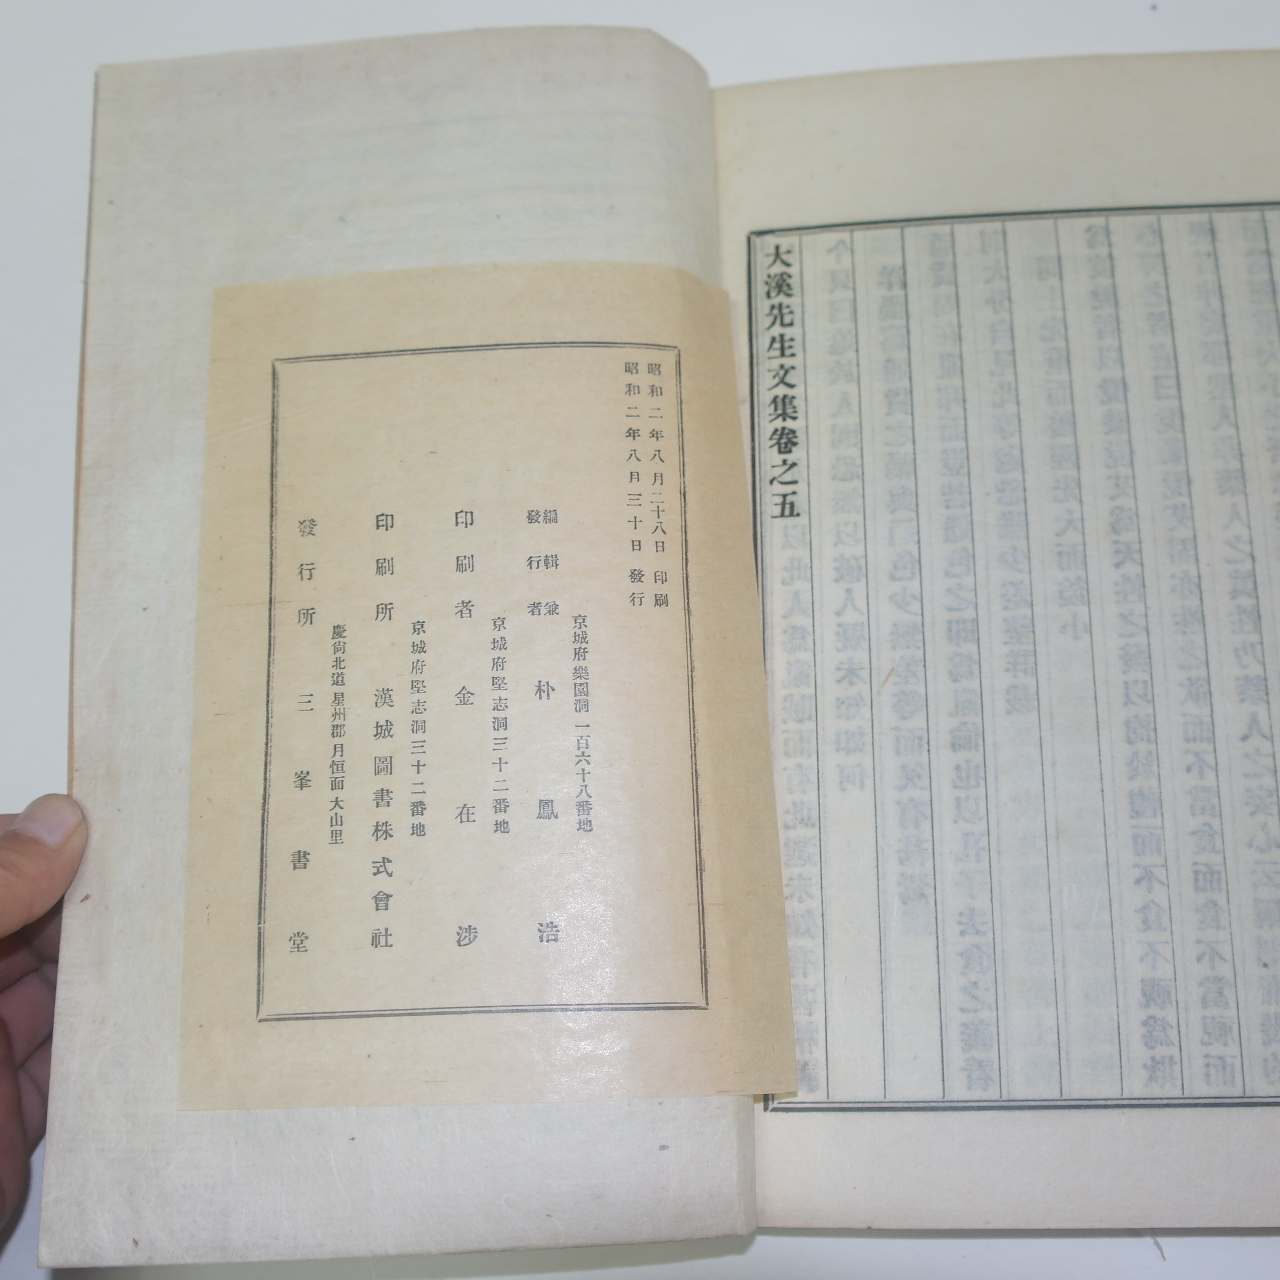 大溪先生文集卷之五
昭和二年八月二十八日 印刷
昭和二年八月三十日 發行
京城府樂園洞一百六十八番地
編輯兼
發行者 朴鳳浩
京城府堅志洞三十二番地
印刷者 金在涉
京城府堅志洞三十二番地
印刷所 漢城圖書株式會社
慶尙北道星州郡月恒面大山里
發行所 三峯書堂